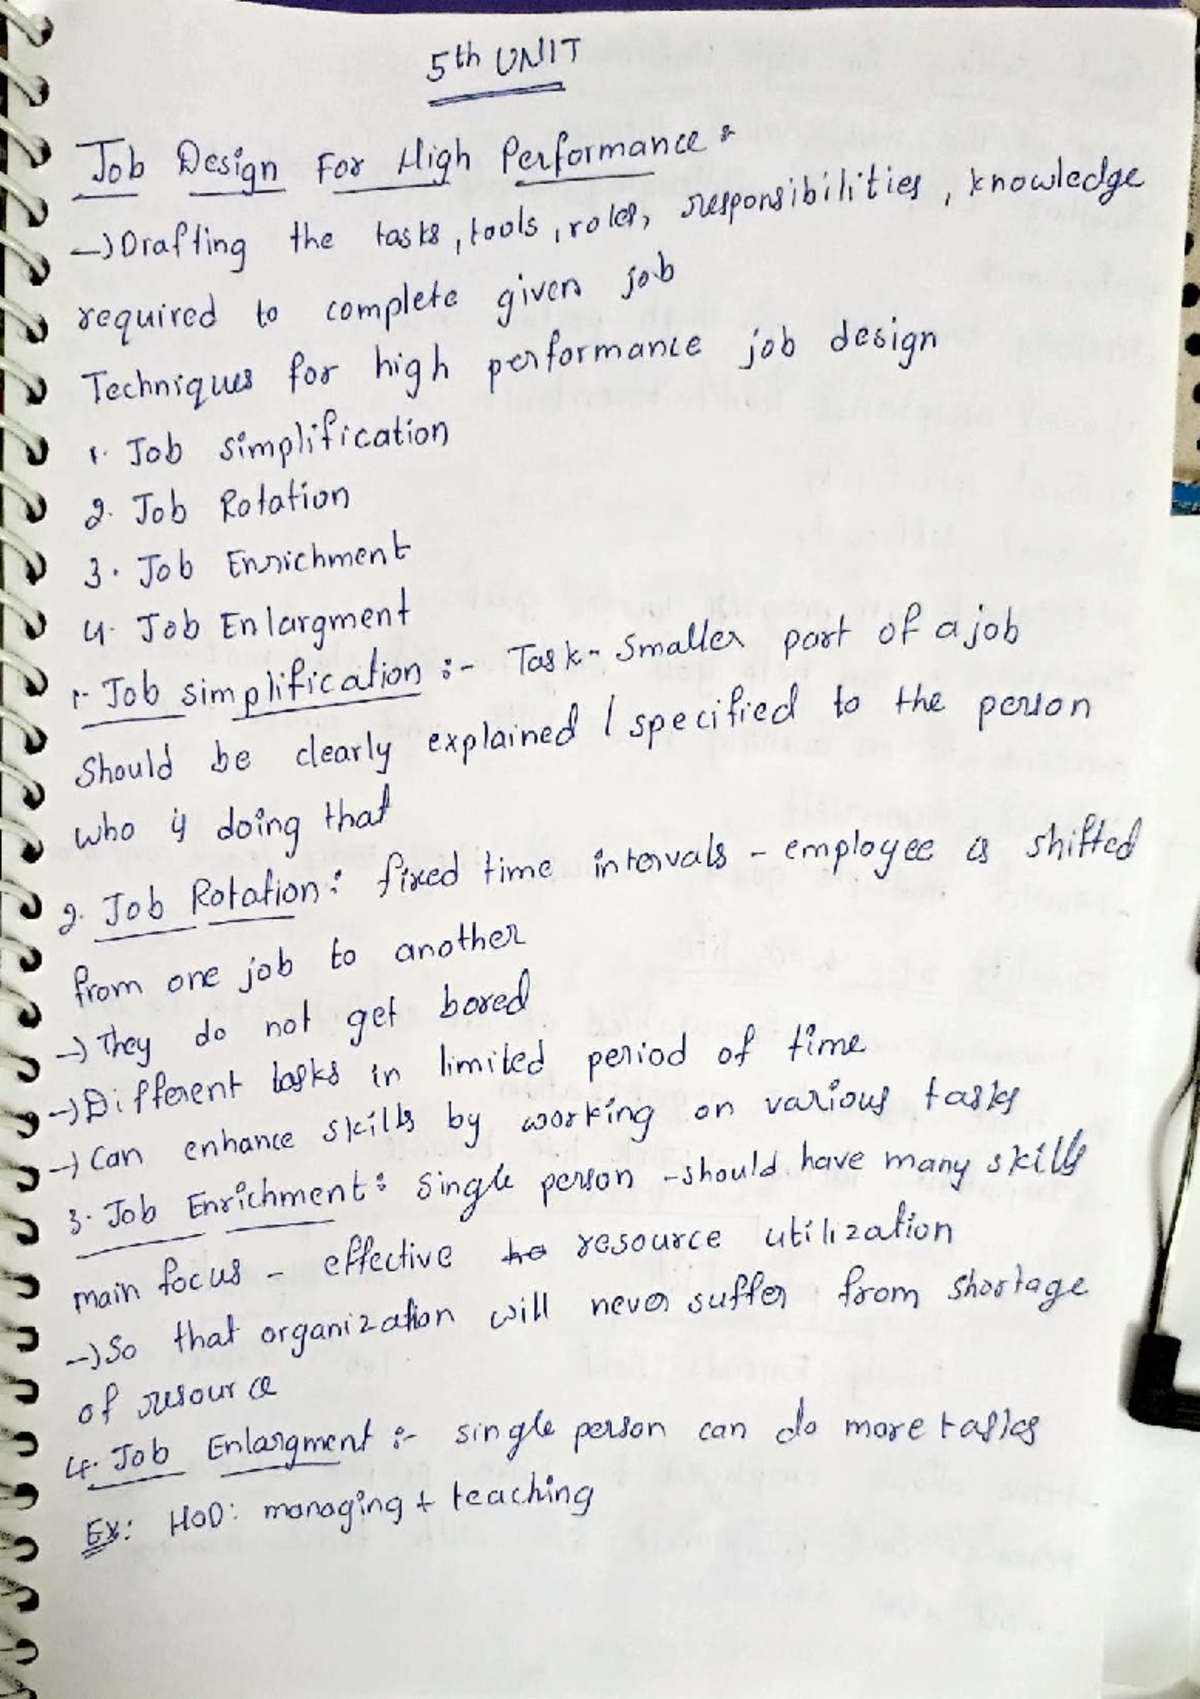 5th UNIT
Job Design For High Performance :
→ Drafting the tasks, tools, roles, responsibilities, knowledge
required to complete given job
Techniques for high performance job design
1. Job simplification
2. Job Rotation
3. Job Enrichment
4. Job Enlargment
1. Job simplification :- Task - Smaller part of a job
Should be clearly explained / specified to the person
who is doing that
2. Job Rotation : fixed time intervals - employee is shifted
from one job to another
→ They do not get bored
→ Different tasks in limited period of time
→ Can enhance skills by working on various tasks
3. Job Enrichment : Single person - should have many skills
main focus - effective resource utilization
→ So that organization will never suffer from shortage
of resource
4. Job Enlargment :- single person can do more tasks
Ex: HOD: managing + teaching